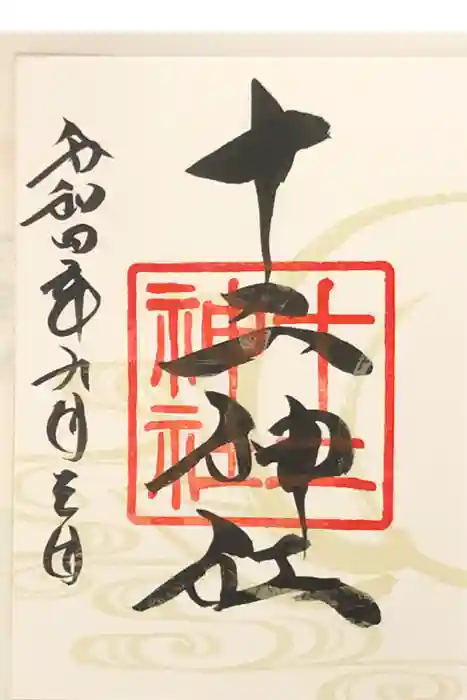 十二神社
十二
神社
令和四年九月三日